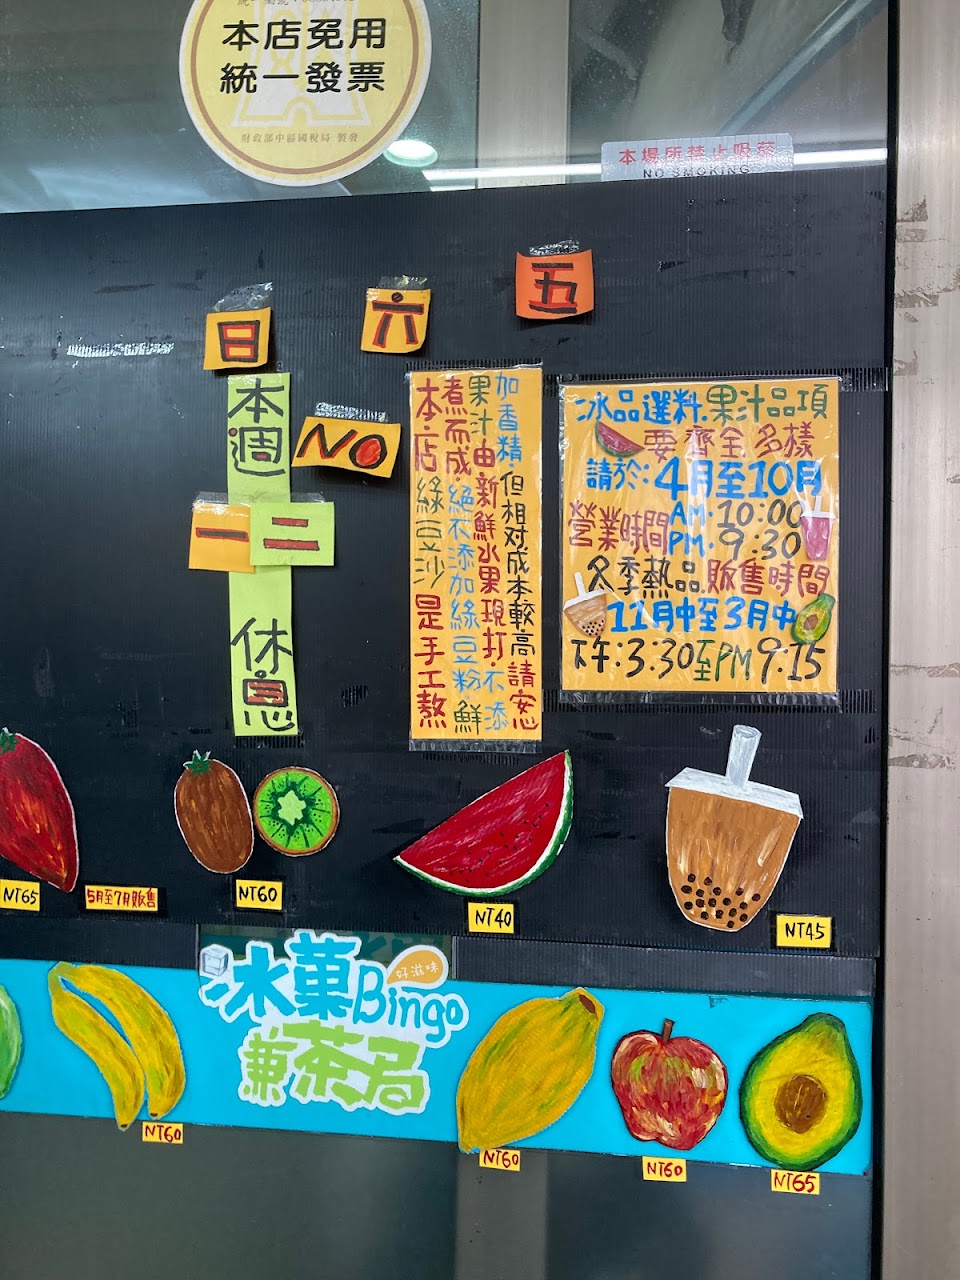 本店免用
統一發票
財政部中區國稅局 製發
本場所禁止吸菸
NO SMOKING
五
六
日
本週
NO
一
二
休息
本店綠豆沙是手工熬
煮而成.絕不添加綠豆粉.鮮
果汁由新鮮水果現打.不添
加香精.但相対成本較高請安心
冰品選料.果汁品項
要齊全多樣
請於:4月至10月
營業時間
AM.10:00
PM.9:30
冬季熱品販售時間
11月中至3月中
下午:3.30至PM9:15
NT65
5月至7月販售
NT60
NT40
NT45
冰菓Bingo
好滋味
兼茶舄
NT60
NT60
NT60
NT65